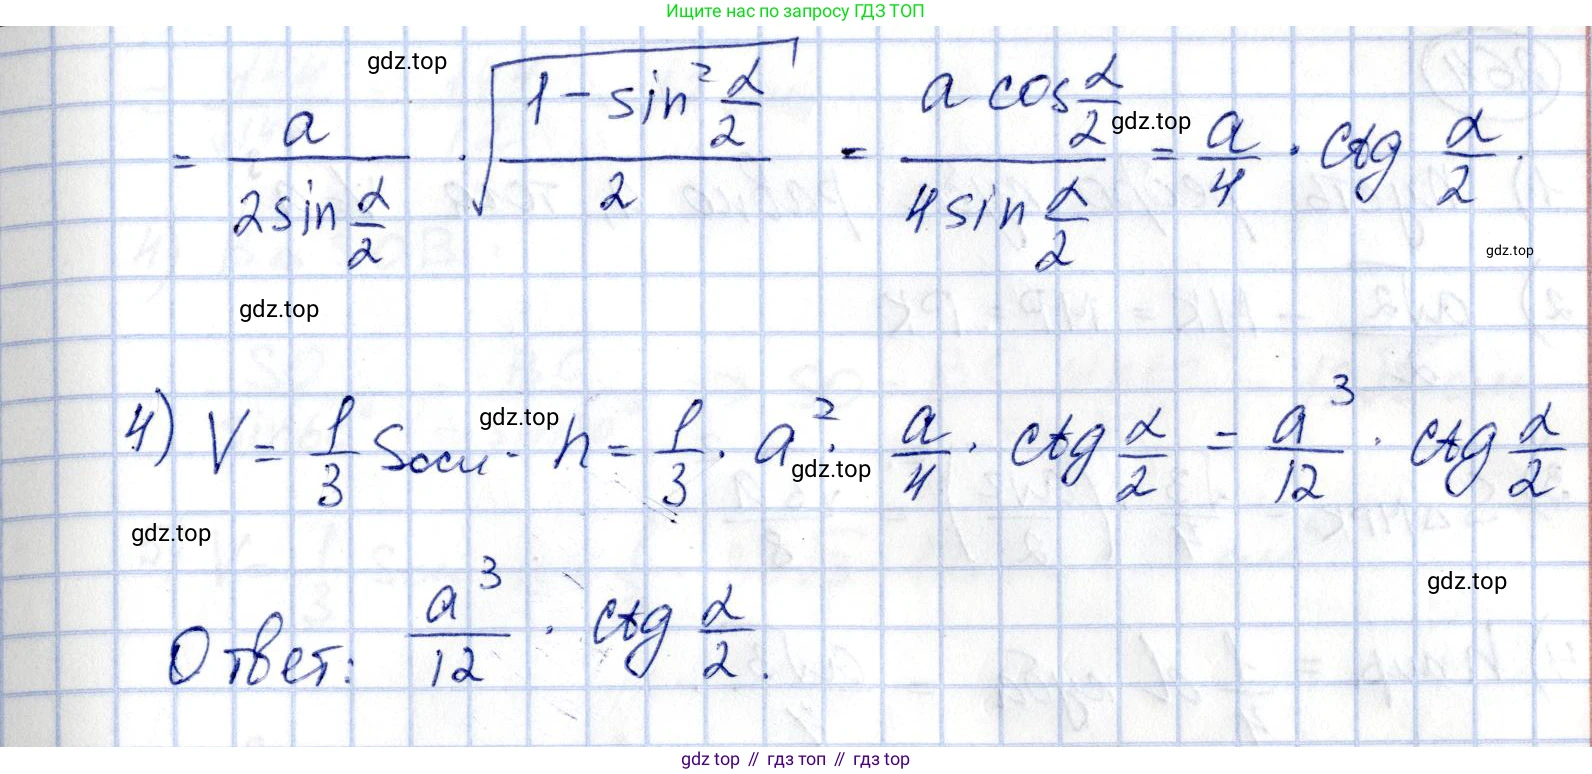 Ищите нас по запросу ГДЗ ТОП
gdz.top
= a / (2 sin α/2) · √((1 - sin² α/2) / 2) = (a cos α/2) / (4 sin α/2) = a/4 · ctg α/2.
gdz.top
gdz.top
gdz.top
4) V = 1/3 Sосн · h = 1/3 · a² · a/4 · ctg α/2 = a³/12 · ctg α/2.
gdz.top
gdz.top
gdz.top
gdz.top
Ответ: a³/12 · ctg α/2.
gdz.top // гдз топ // гдз.top